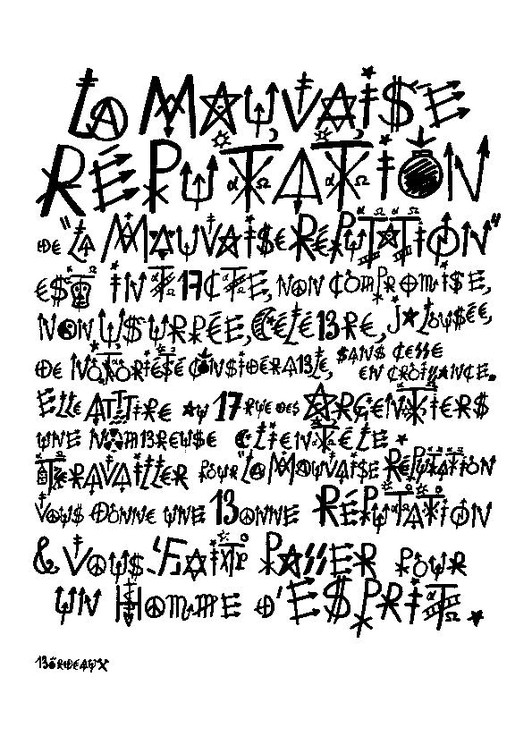 LA MAUVAISE
RÉPUTATION
DE "LA MAUVAISE RÉPUTATION"
EST INTACTE, NON COMPROMISE,
NON USURPÉE, CÉLÈBRE, JALOUSÉE,
DE NOTORIÉTÉ CONSIDÉRABLE, SANS CESSE
EN CROISSANCE.
ELLE ATTIRE AU 17 RUE DES ARGENTIERS
UNE NOMBREUSE CLIENTÈLE
TRAVAILLER POUR "LA MAUVAISE RÉPUTATION
VOUS DONNE UNE BONNE RÉPUTATION
& VOUS FAIT PASSER POUR
UN HOMME D'ESPRIT.
BORDEAUX